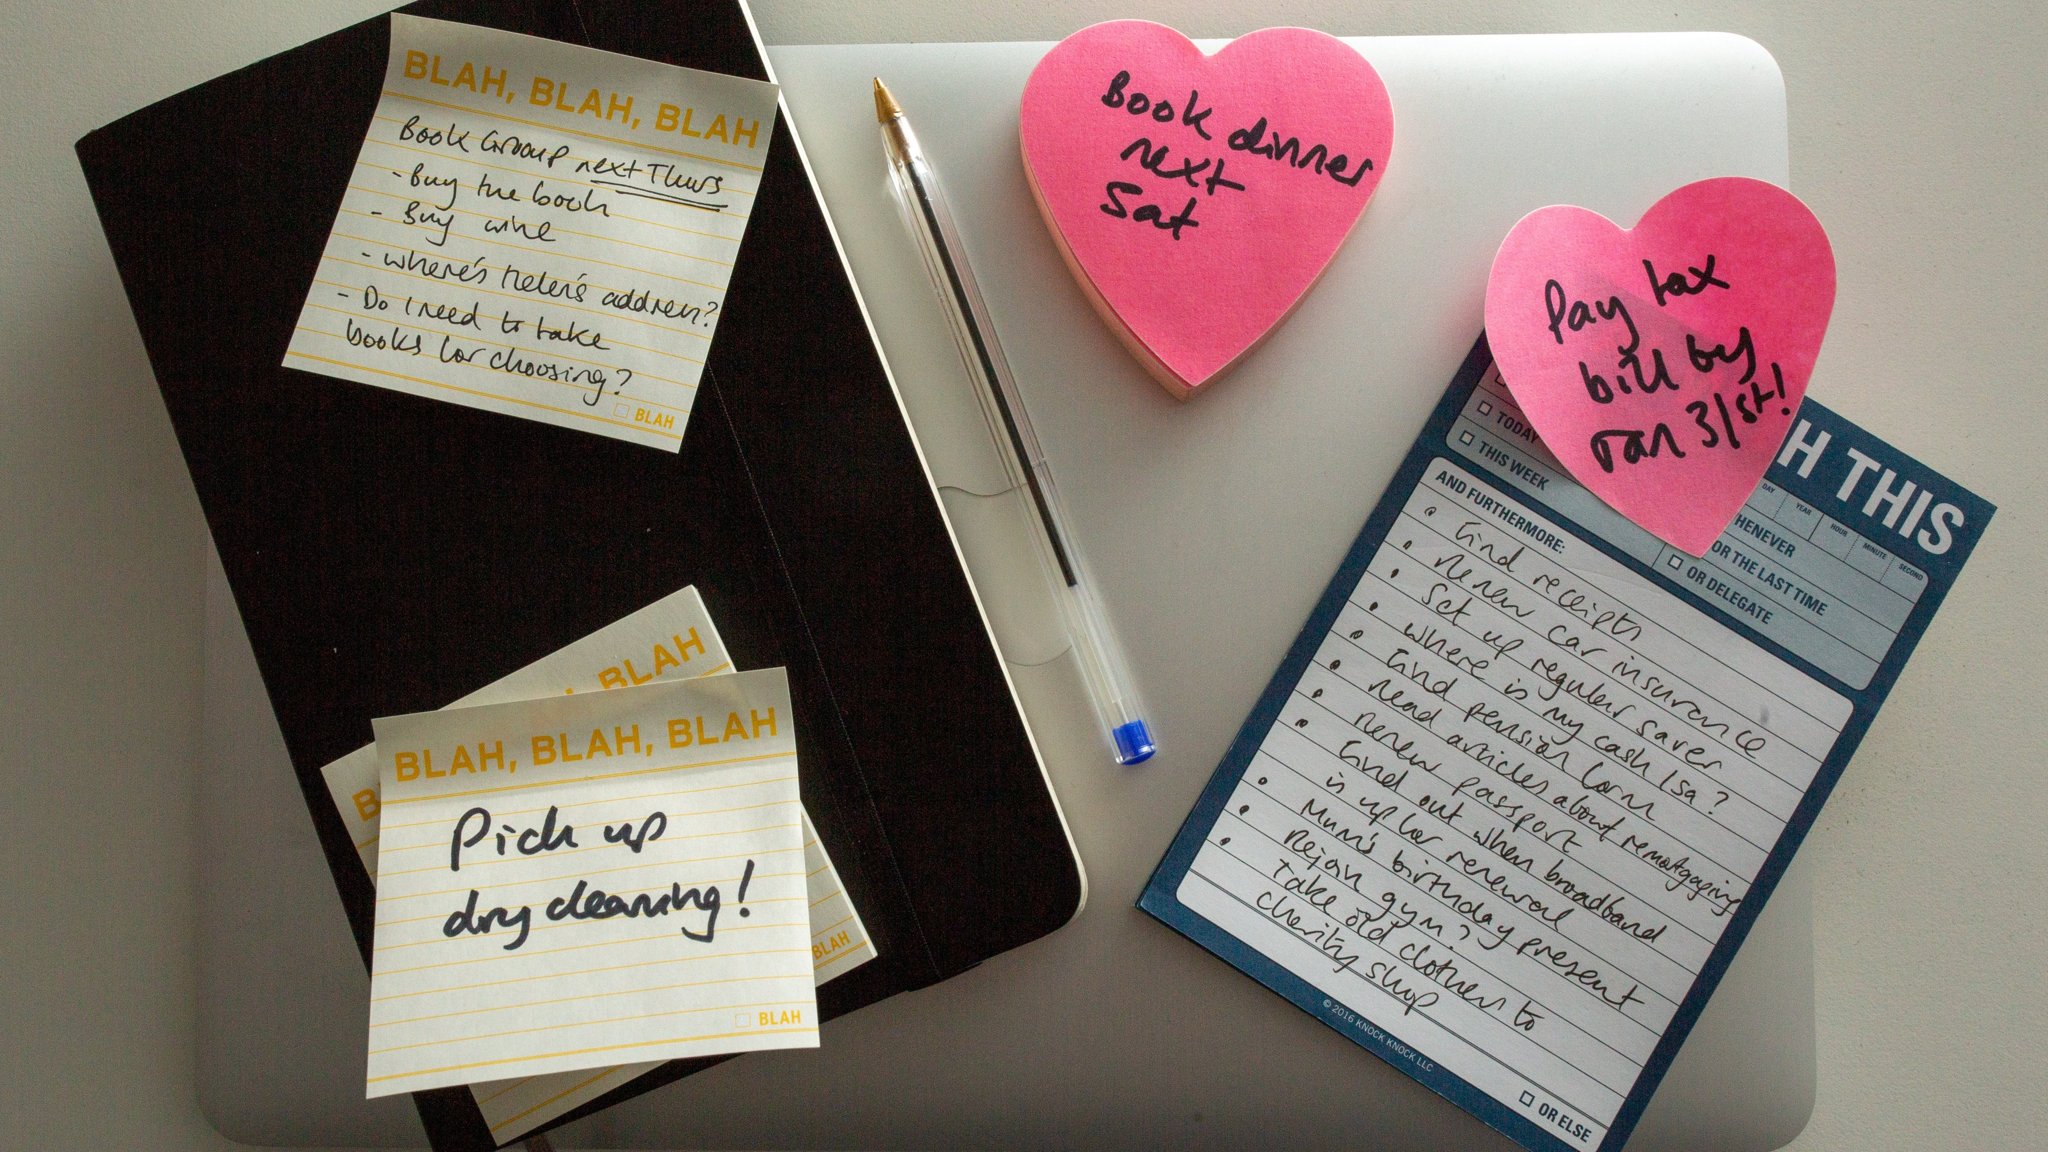 BLAH, BLAH, BLAH
Book Group next Thurs
- Buy the book
- Buy wine
- Where's Helen's address?
- Do I need to take
books for choosing?
BLAH
BLAH
B
BLAH
BLAH, BLAH, BLAH
Pick up
dry cleaning!
BLAH
Book dinner
next
Sat
Pay tax
bill by
Jan 31st!
H THIS
TODAY
THIS WEEK
DAY
YEAR
HOUR
MINUTE
SECOND
HENEVER
OR THE LAST TIME
OR DELEGATE
AND FURTHERMORE:
• Find receipts
• Renew car insurance
• Set up regular saver
• Where is my cash Isa?
• Find pension form
• Read articles about remortgaging
• Renew passport
• Find out when broadband
is up for renewal
• Mum's birthday present
• Rejoin gym?
• Take old clothes to
charity shop
© 2016 KNOCK KNOCK LLC
OR ELSE